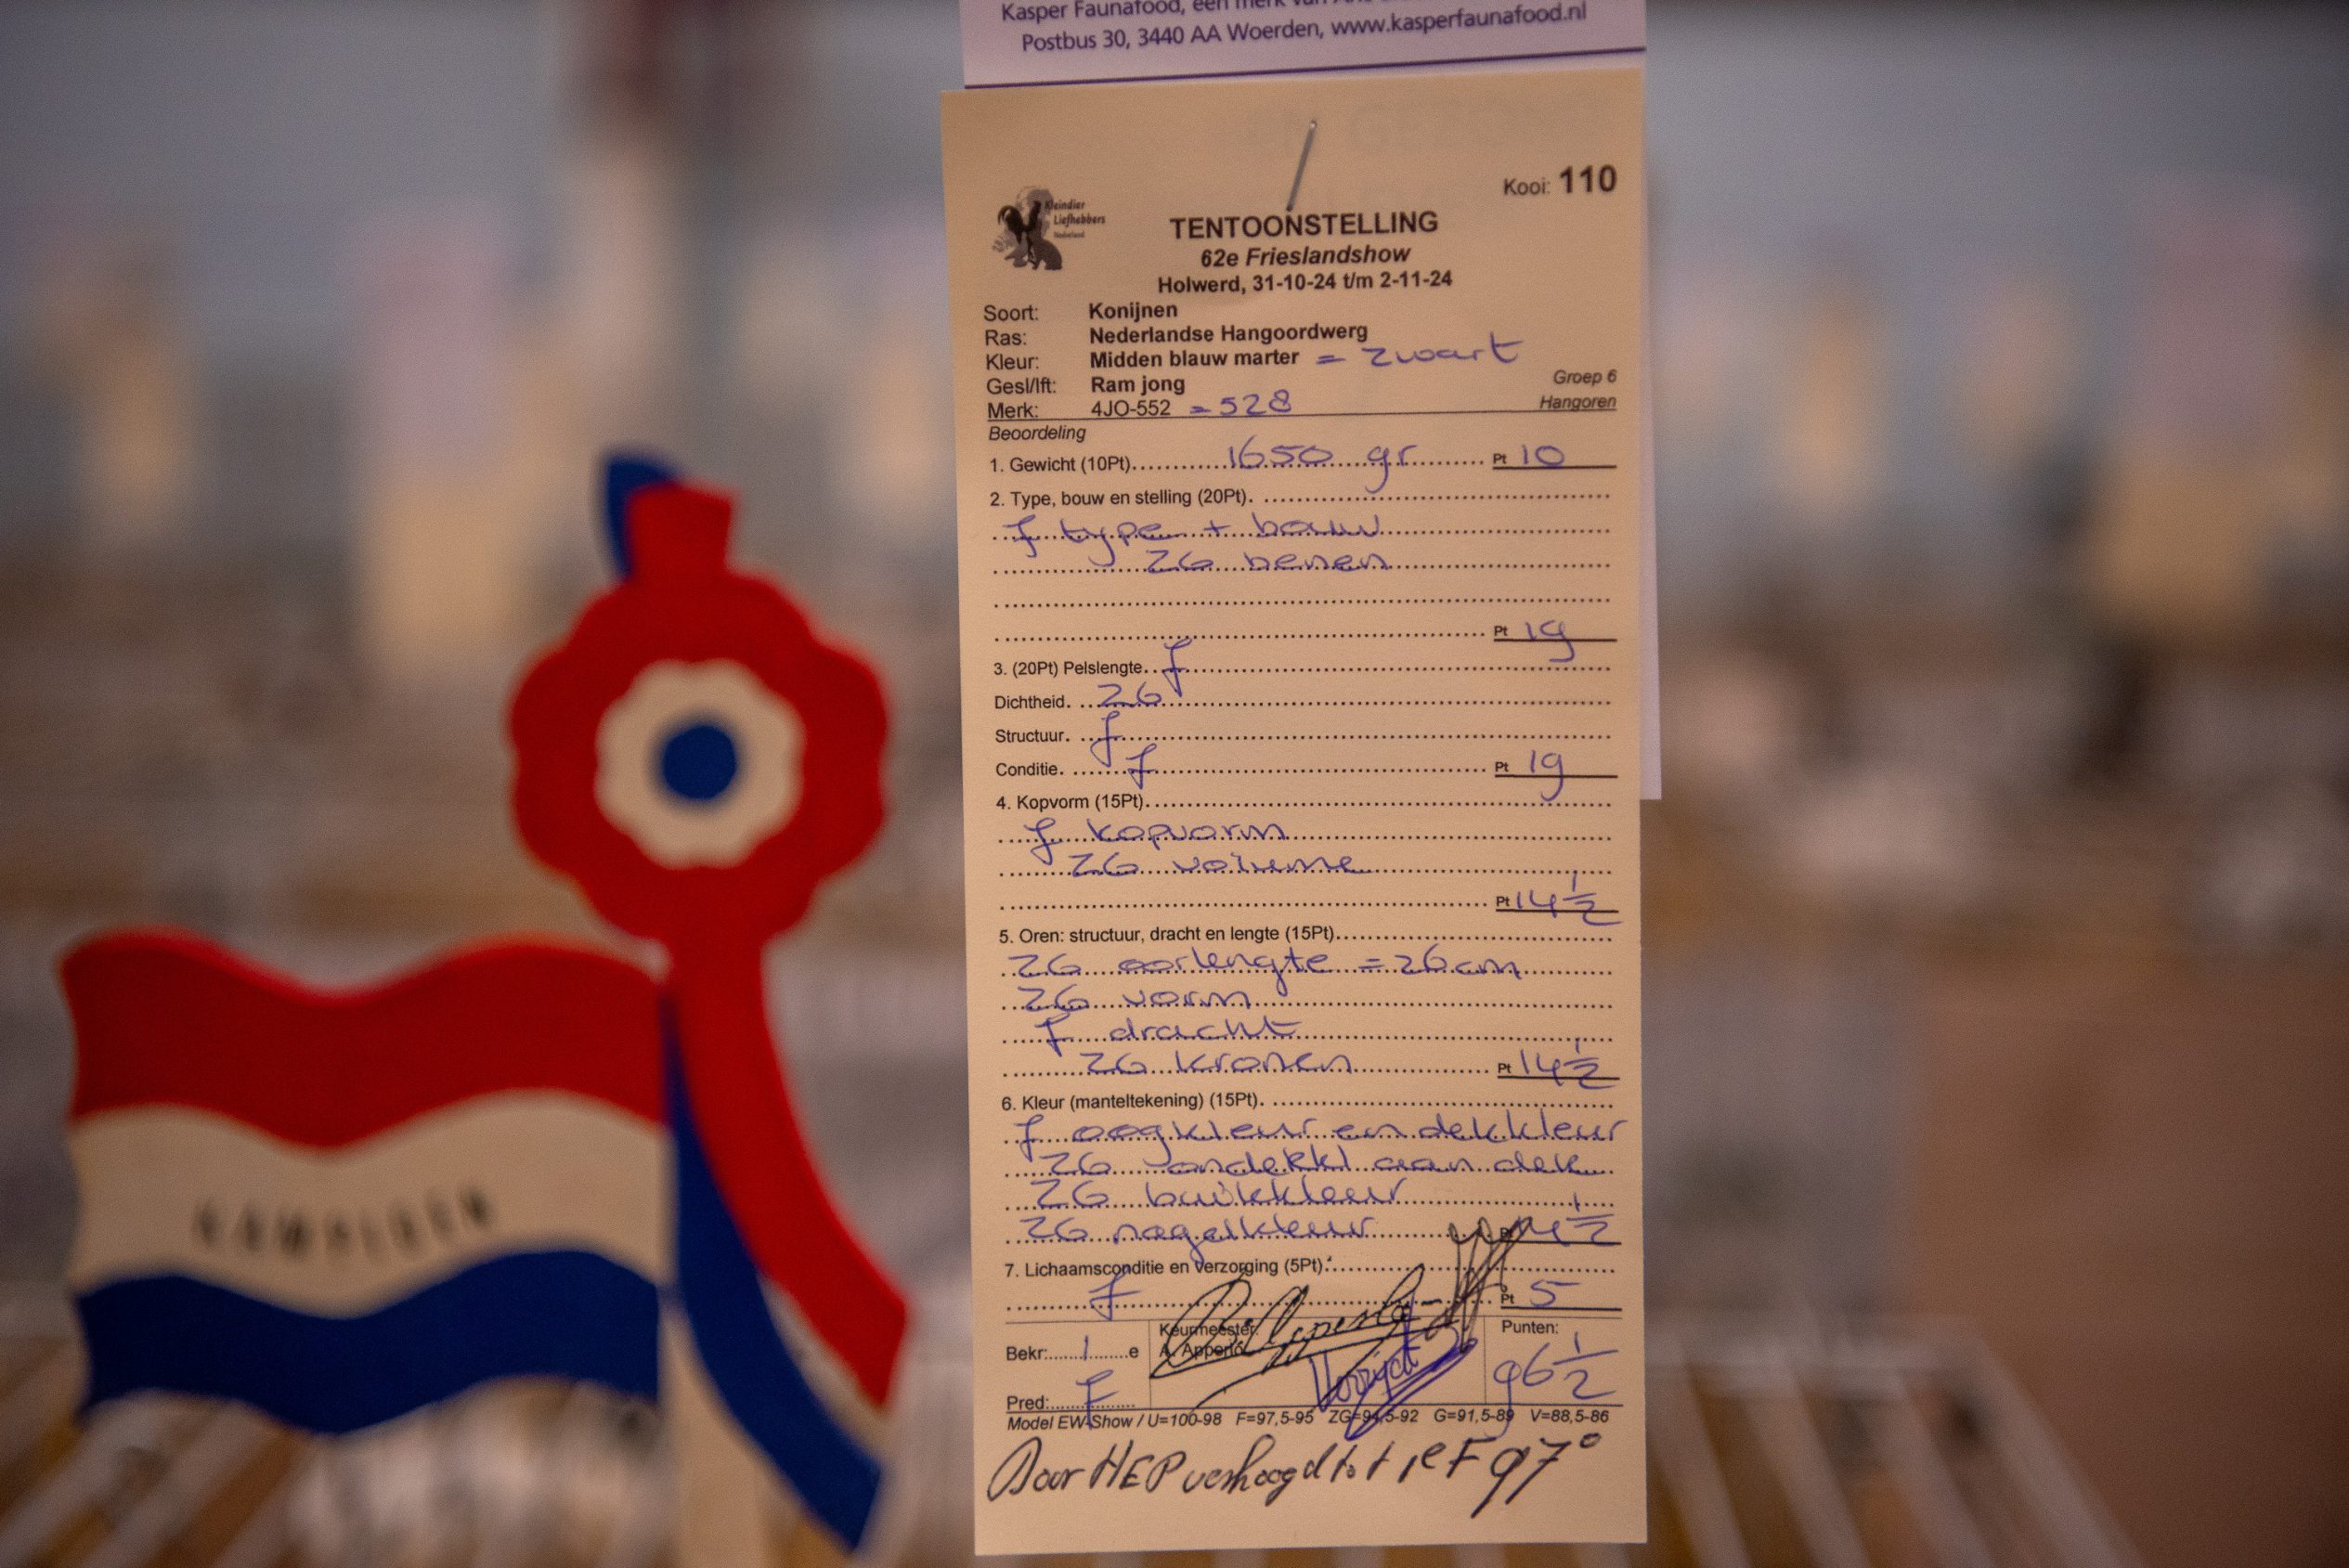 Kasper Faunafood, een merk van
Postbus 30, 3440 AA Woerden, www.kasperfaunafood.nl
Kooi: 110
Kleindier
Liefhebbers
Nederland
TENTOONSTELLING
62e Frieslandshow
Holwerd, 31-10-24 t/m 2-11-24
Soort: Konijnen
Ras: Nederlandse Hangoordwerg
Kleur: Midden blauw marter = zwart
Gesl/lft: Ram jong
Groep 6
Merk: 4JO-552 = 528
Hangoren
Beoordeling
1. Gewicht (10Pt) 1650 gr Pt 10
2. Type, bouw en stelling (20Pt).
f type + bouw
ZG benen
Pt 19
3. (20Pt) Pelslengte f
Dichtheid. ZG
Structuur. f
Conditie. f Pt 19
4. Kopvorm (15Pt)
f kopvorm
ZG volume
Pt 14 1/2
5. Oren: structuur, dracht en lengte (15Pt)
ZG oorlengte = 26 cm
ZG vorm
f dracht
ZG kronen Pt 14 1/2
6. Kleur (manteltekening) (15Pt).
f oogkleur en dekkleur
ZG aan dek
ZG buikkleur
ZG nagelkleur Pt 14 1/2
7. Lichaamsconditie en verzorging (5Pt)
f Pt 5
Bekr: 1 e
Keurmeester:
Punten:
96 1/2
Pred: F
Model EW-Show / U=100-98 F=97,5-95 ZG=94,5-92 G=91,5-89 V=88,5-86
Door HEP verhoogd tot 1e F 97°
KAMPIOEN